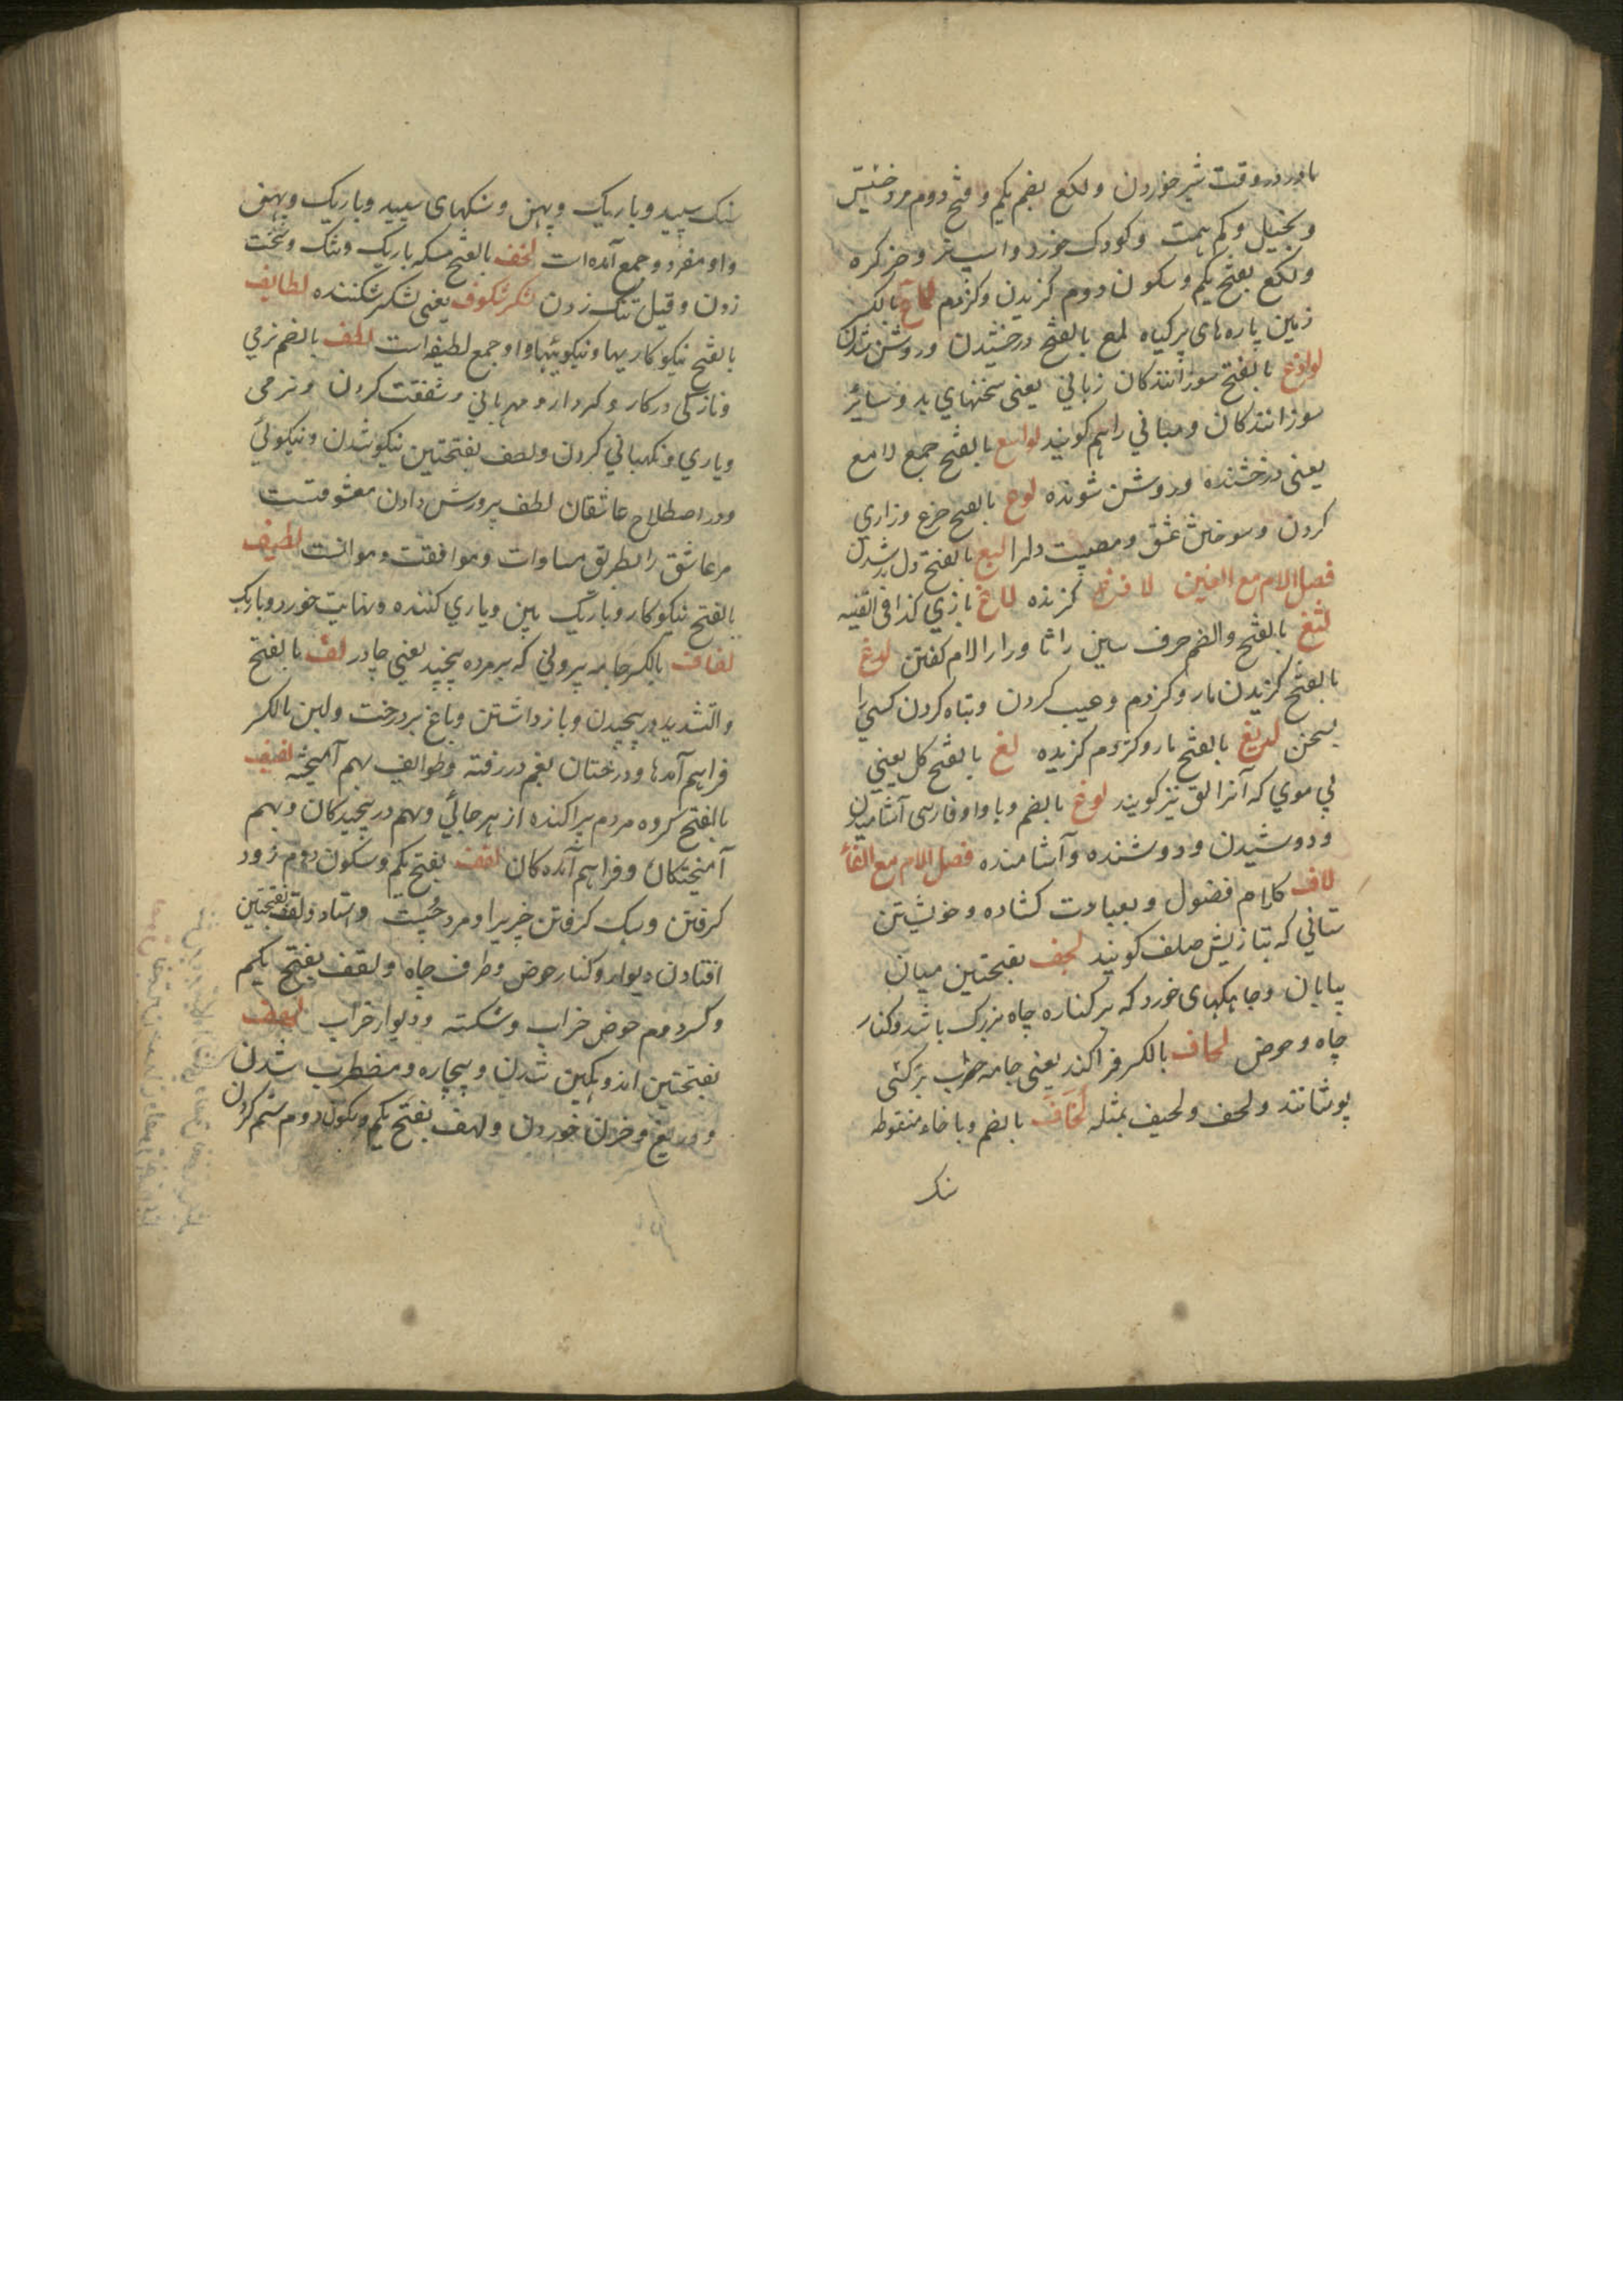 مادر در وقت شیر خوردن ولکع بضم یکم و فتح دوم مرد خسیس
و بخیل و کم همت و کودک خورد و اسپ نر و خر کره
ولکع بفتح یکم و سکون دوم گزیدن و کژدم لماع بالکسر
زمین پاره های پر کیاه لمع بالفتح درخشیدن و روشن شدن
لواذع بالفتح سوزانندکان زبانی یعنی سخنهای بد و سایر
سوزانندکان و مبانی را هم کویند لوامع بالفتح جمع لامع
یعنی درخشنده و روشن شونده لوع بالفتح جزع و زاری
کردن و سوختن عشق و مصیبت دلرا لیع بالفتح دل شدن
فصل اللام مع الغین لادغ کزنده لاغ بازی کذا فی القنیه
لثغ بالفتح والضم حرف سین را ثا و را را لام کفتن لدغ
بالفتح کزیدن مار و کزدم و عیب کردن و تباه کردن کسی را
بسخن لدیغ بالفتح مار و کژدم کزیده لغ بالفتح کل یعنی
بی موی که آنرا لق نیز کویند لوغ بالضم و با واو فارسی آشامیدن
و دوشیدن و دوشنده و آشامنده فصل اللام مع الفاء
لاف کلام فضول و بعبادت کشاده و خویشتن
ستانی که بتازیش صلف کویند لجف بفتحتین میان
بیابان و چاهکهای خورد که بر کناره چاه بزرک باشد و کنار
چاه و حوض لحاف بالکسر فراکند یعنی جامه حرب برکستی
پوشانند ولحف ولحیف بمثله لخاف بالضم و با خاء منقوطه
سنک
سنک سپید و باریک و پهن و سنکهای سپید و باریک و پهن
و او مفرد و جمع آمده است لخف بالفتح مسکه باریک و تنک و سخت
زدن و قیل تنک زدن لشکرشکوف یعنی لشکر شکننده لطایف
بالفتح نیکو کاریها و نیکوئیها و او جمع لطیفه است لطف بالضم نرمی
و نازکی در کار و کردار و مهربانی و شفقت کردن و نرمی
و یاری و نکهبانی کردن ولطف بفتحتین نیکو شدن و نیکوئی
و در اصطلاح عاشقان لطف پرورش دادن معشوقست
مر عاشق را بطریق مساوات و موافقت و موانست لطیف
بالفتح نیکو کار و باریک بین و یاری کننده و نهایت خورد و باریک
لفاف بالکسر جامه بیرونی که بر مرده پیچند یعنی چادر لف بالفتح
والتشدید در پیچیدن و باز داشتن و باغ پر درخت ولین بالکسر
فراهم آمدها و درختان بغم در رفته و طوایف بهم آمیخته لفیف
بالفتح کروه مردم پراکنده از هر جائی و بهم در پیچیدکان و بهم
آمیختکان و فراهم آمده کان لقف بفتح یکم و سکون دوم زود
کرفتن و سبک کرفتن چیزی را و مرد چست و استاد ولقف بفتحتین
افتادن دیوار و کنار حوض و طرف چاه ولقف بفتح یکم
و کسر دوم حوض خراب و شکسته و دیوار خراب لهف
بفتحتین اندوهکین شدن و بیچاره و مضطرب شدن
و دریغ و حزن خوردن ولهف بفتح یکم و سکون دوم ستم کردن